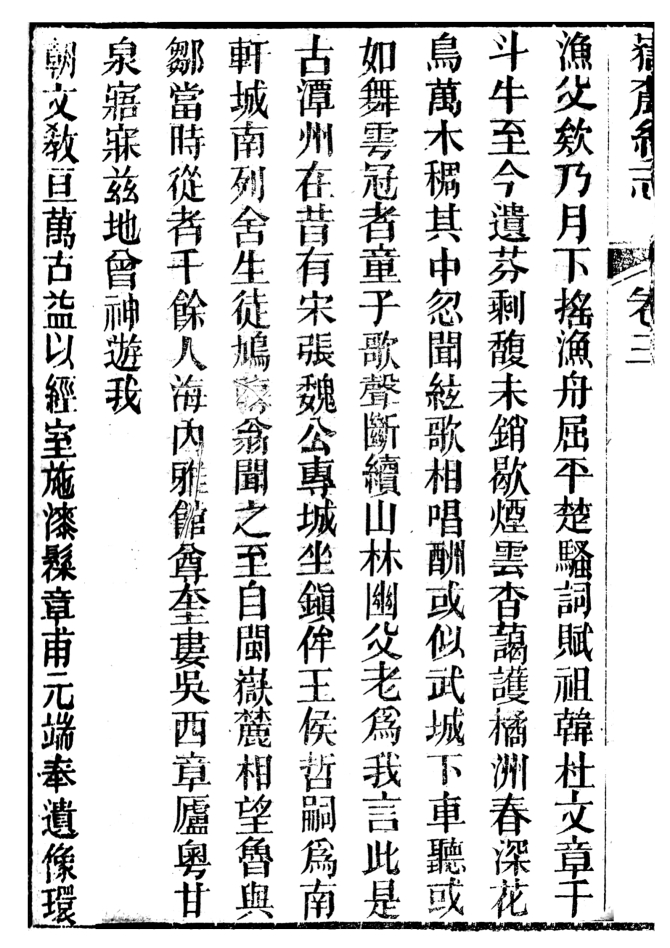 嶽麓續志 卷三
漁父欸乃月下搖漁舟屈平楚騷詞賦祖韓杜文章干
斗牛至今遺芬剩馥未銷歇煙雲杳藹護橘洲春深花
鳥萬木稠其中忽聞絃歌相唱酬或似武城下車聽或
如舞雩冠者童子歌聲斷續山林幽父老爲我言此是
古潭州在昔有宋張魏公專城坐鎮侔王侯哲嗣爲南
軒城南列舍生徒鳩翁聞之至自閩嶽麓相望魯與
鄒當時從者千餘人海內雅館尊奎婁吳西章廬粵甘
泉寤寐兹地曾神遊我
朝文教亘萬古益以經室施漆髹章甫元端奉遺像環